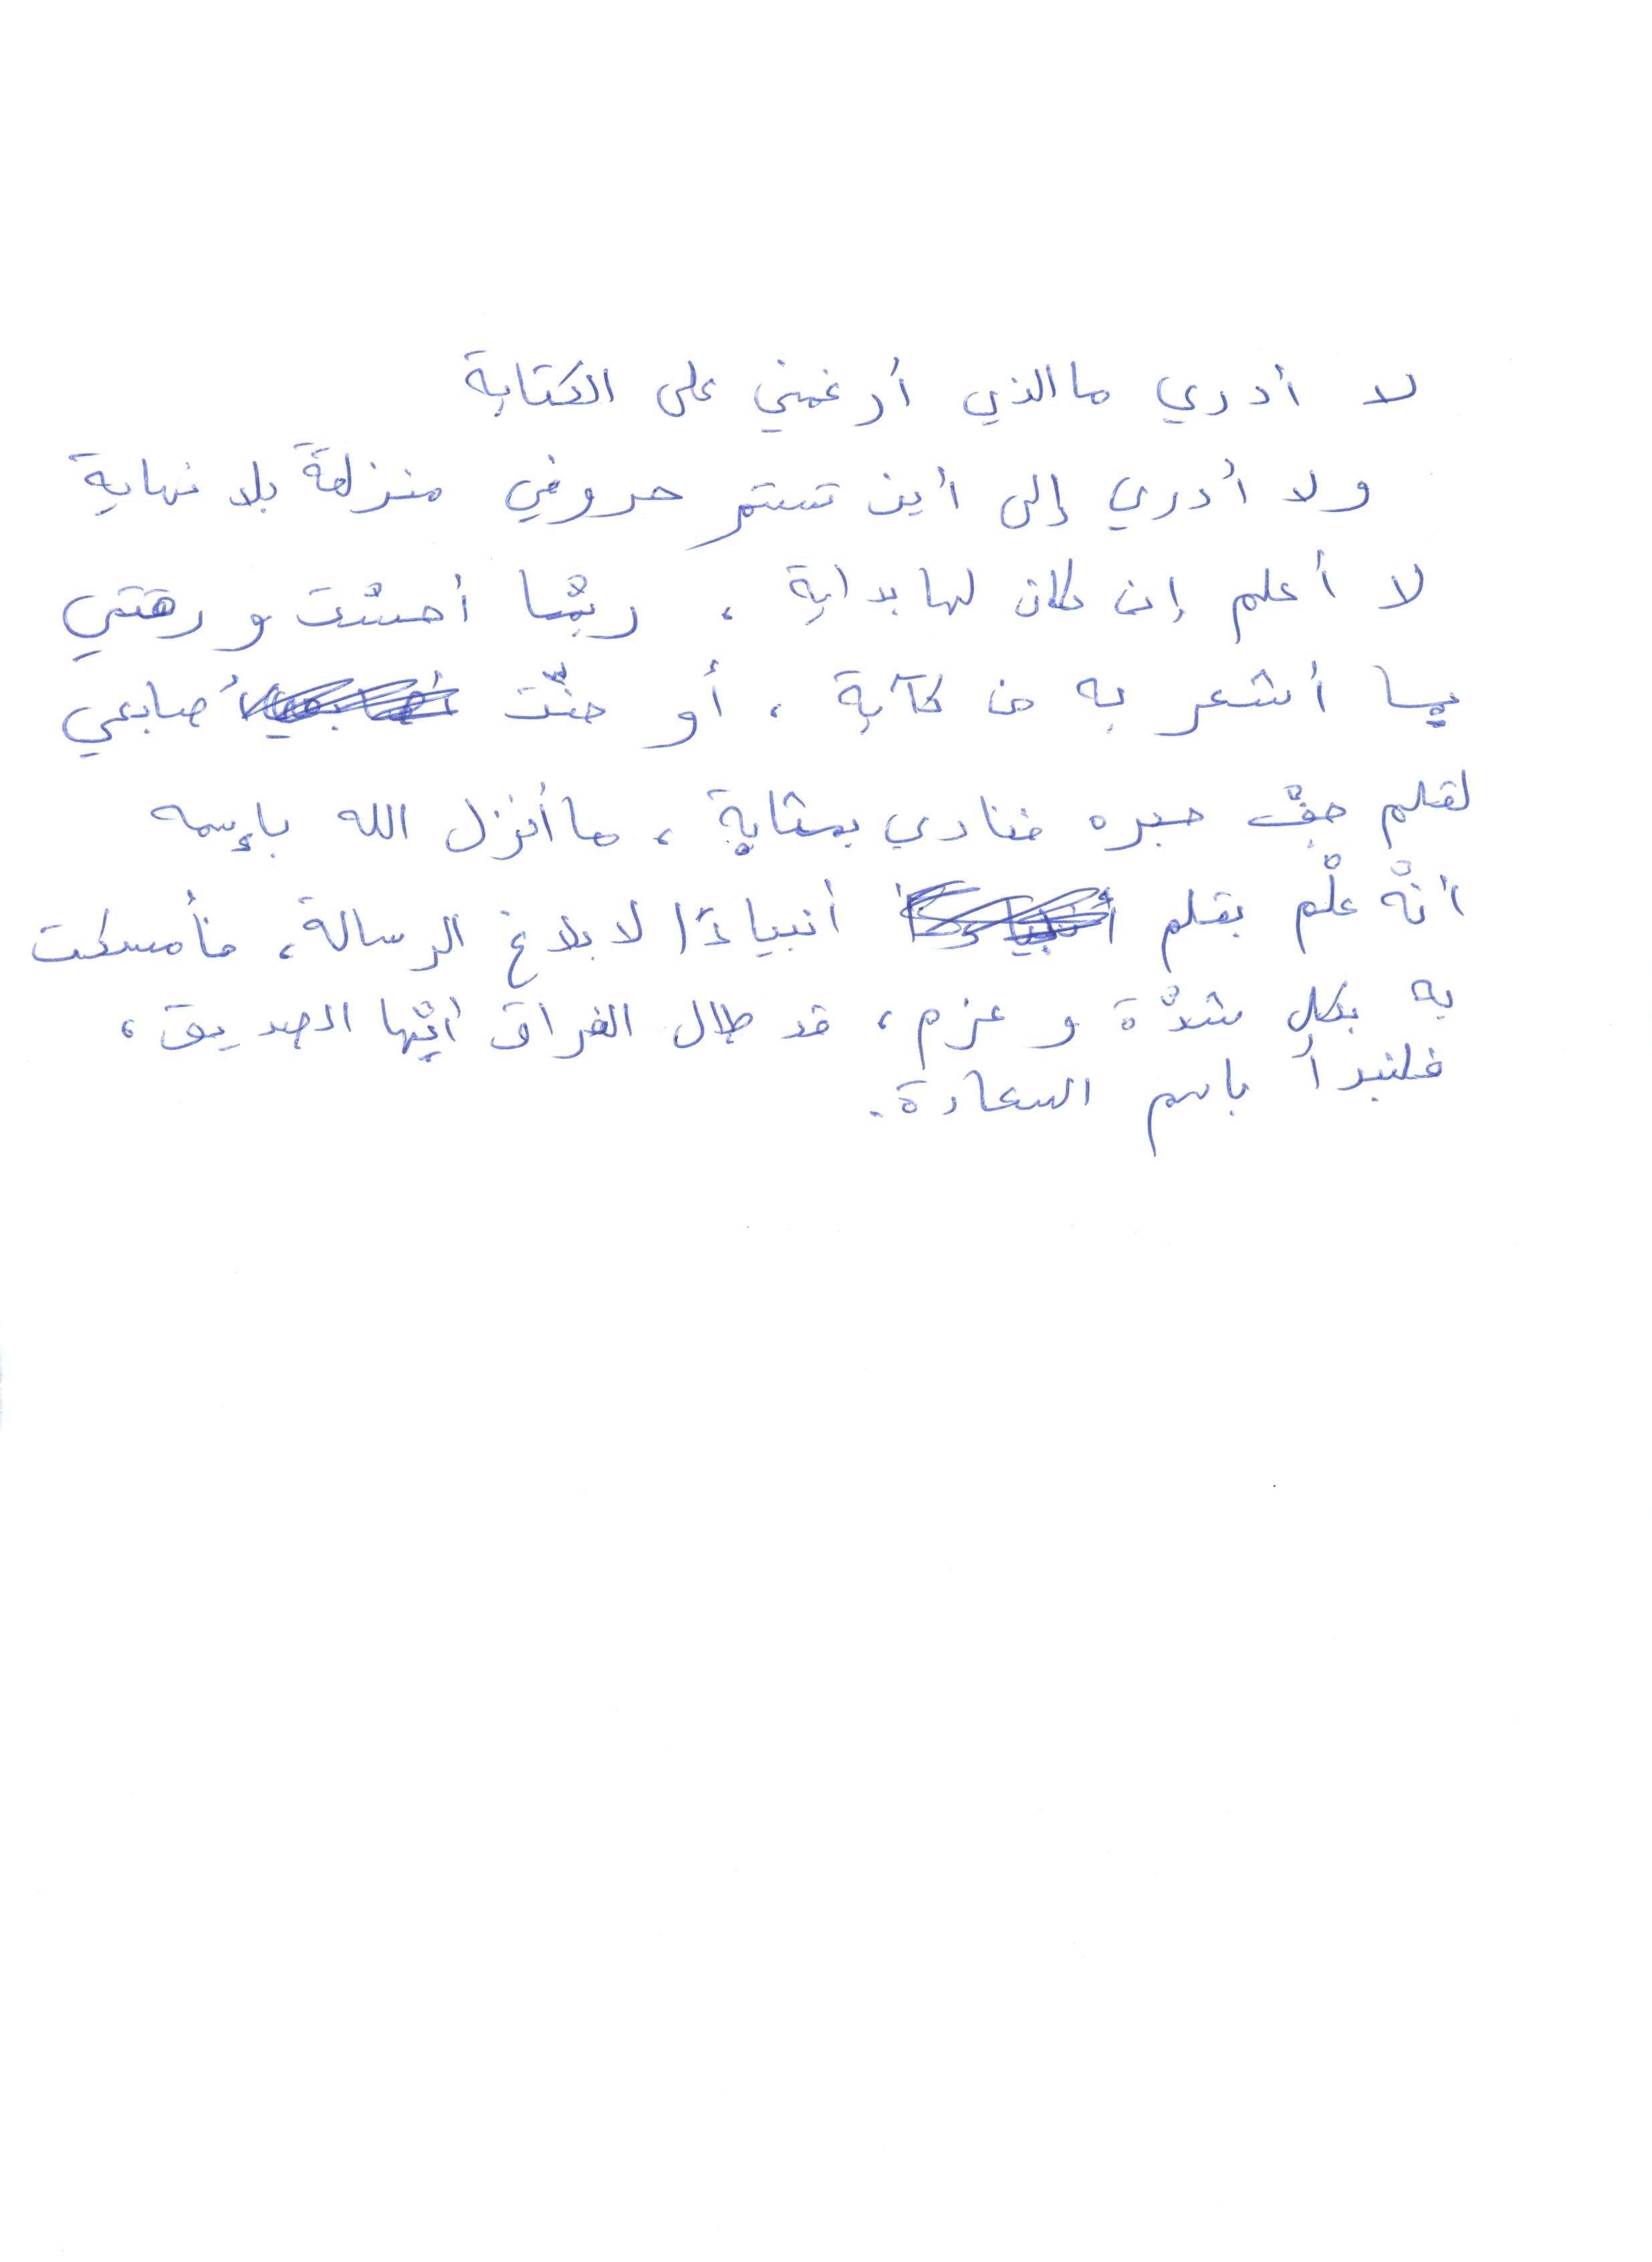 لا أدري ما الذي أرغمني على الكتابة
ولا أدري إلى أين تستمر حروفي منزلقة بلا نهاية
لا أعلم إن كان لها بداية، ربّما أحسّت ورقتي
بما أشعر به من كآبة، أو حنّت أصابعي
لقلم جفّ حبره فنادى بمثابة، ما أنزل الله بإسمه
أنّه علّم بقلم أنبياءًا لابلاغ الرسالة، فأمسكت
به بكل شدّة و عزم، قد طال الفراق أيّها الصديق،
فلنبدأ باسم السعادة.